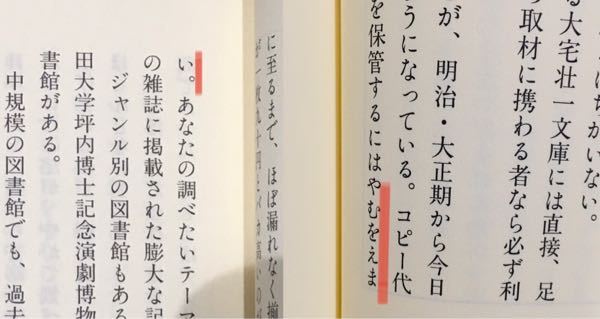 ちがいない。
る大宅壮一文庫には直接、足
の取材に携わる者なら必ず利
が、明治・大正期から今日
うになっている。コピー代
を保管するにはやむをえま
に至るまで、ほぼ漏れなく揃
が一枚九十円とバカ高いのが
い。あなたの調べたいテーマ
の雑誌に掲載された膨大な記
ジャンル別の図書館もある
田大学坪内博士記念演劇博物
書館がある。
中規模の図書館でも、過去